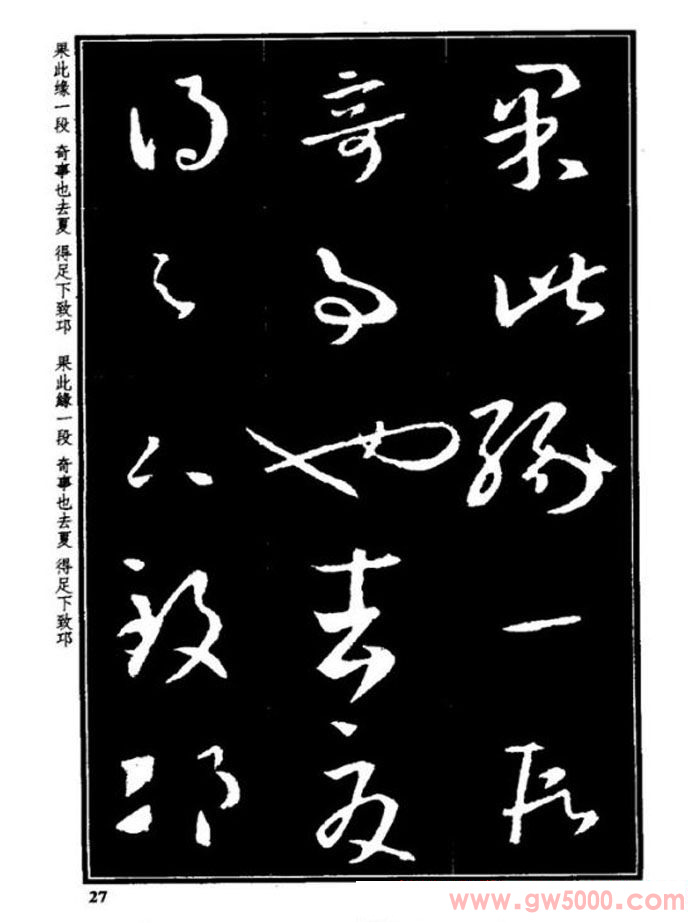 果此緣一段
奇事也去夏
得足下致邛
果此缘一段 奇事也去夏 得足下致邛 果此緣一段 奇事也去夏 得足下致邛
27
www.gw5000.com